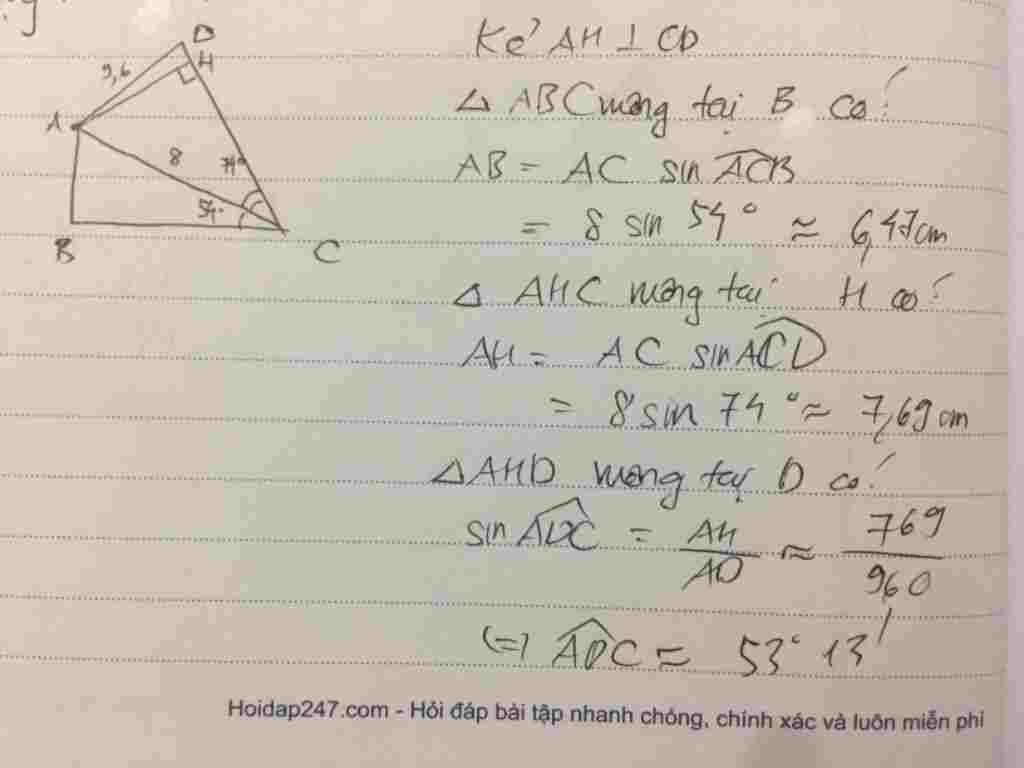 9,6
D
H
A
8
74°
54°
B
C
Kẻ AH ⊥ CD
Δ ABC vuông tại B có:
AB = AC sin ACB
= 8 sin 54° ≈ 6,47cm
Δ AHC vuông tại H có:
AH = AC sin ACD
= 8 sin 74° ≈ 7,69 cm
Δ AHD vuông tại D có:
sin ADC = AH/AD ≈ 769/960
(=) ADC = 53° 13'
Hoidap247.com - Hỏi đáp bài tập nhanh chóng, chính xác và luôn miễn phí